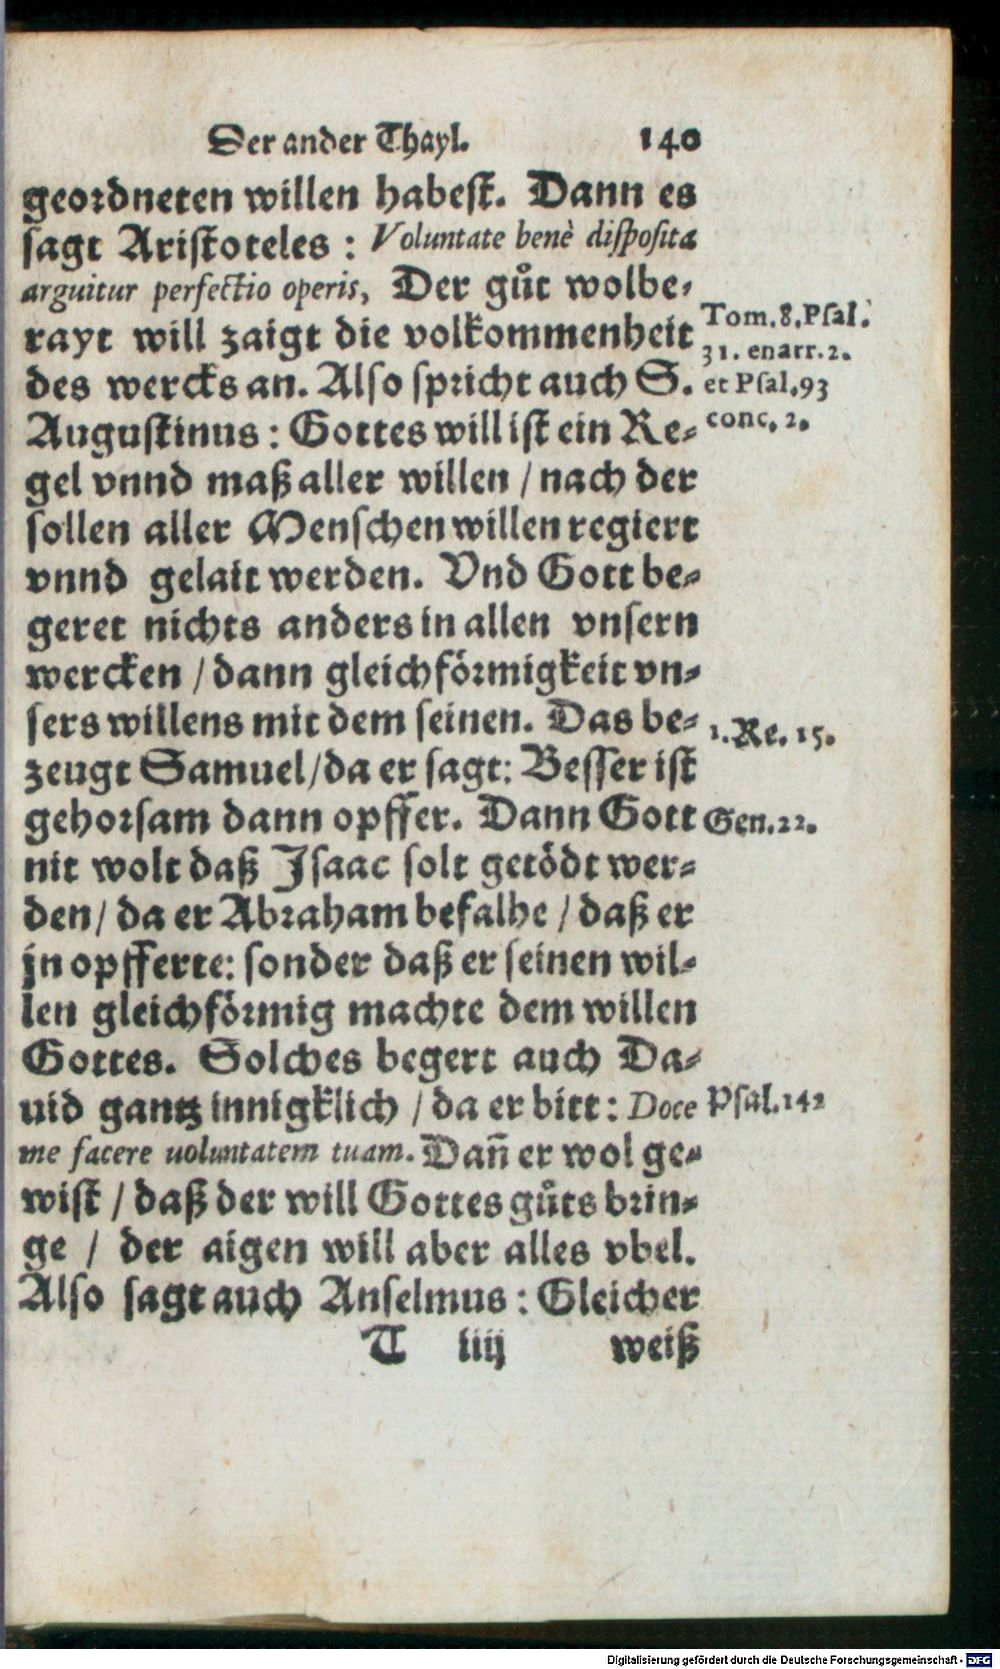 Der ander Thayl. 140
geordneten willen habest. Dann es
sagt Aristoteles : Voluntate benè disposita
arguitur perfectio operis, Der gůt wolbe-
rayt will zaigt die volkommenheit
des wercks an. Also spricht auch S.
Augustinus : Gottes will ist ein Re-
gel vnnd maß aller willen / nach der
sollen aller Menschen willen regiert
vnnd gelait werden. Vnd Gott be-
geret nichts anders in allen vnsern
wercken / dann gleichförmigkeit vn-
sers willens mit dem seinen. Das be-
zeugt Samuel/da er sagt: Besser ist
gehorsam dann opffer. Dann Gott
nit wolt daß Isaac solt getödt wer-
den/ da er Abraham befalhe / daß er
jn opfferte: sonder daß er seinen wil-
len gleichförmig machte dem willen
Gottes. Solches begert auch Da-
uid gantz innigklich / da er bitt : Doce
me facere uoluntatem tuam. Dañ er wol ge-
wist / daß der will Gottes gůts brin-
ge / der aigen will aber alles vbel.
Also sagt auch Anselmus : Gleicher
T iiij weiß
Tom.8.Psal.
31. enarr.2.
et Psal.93
conc. 2.
1.Re. 15.
Gen.22.
Psal.142
Digitalisierung gefördert durch die Deutsche Forschungsgemeinschaft - DFG